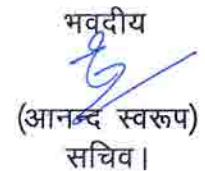 भवदीय
(आनन्द स्वरूप)
सचिव।